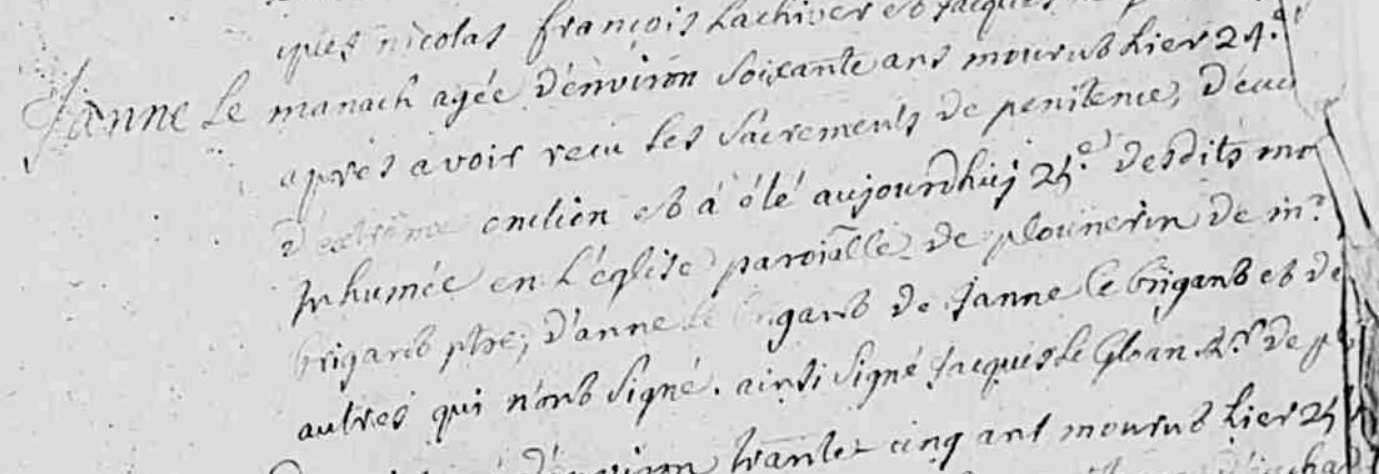 ques nicolas françois Lachiver et Jacques
Janne Le manach agée d'environ soixante ans mourut hier 24.e
apres avoir recu les sacrements de penitence, d'euc
d'extreme onction et a été aujourdhuj 25.e desdits mo
Inhumée en L'église paroissialle de plounerin de m.r
brigant ptre, d'anne le brigant de Janne le brigant et de
autres qui n'ont signé. ainsi signé Jacques Le Gloan R.r de pl
d'environ trante cinq ans mourut hier 25